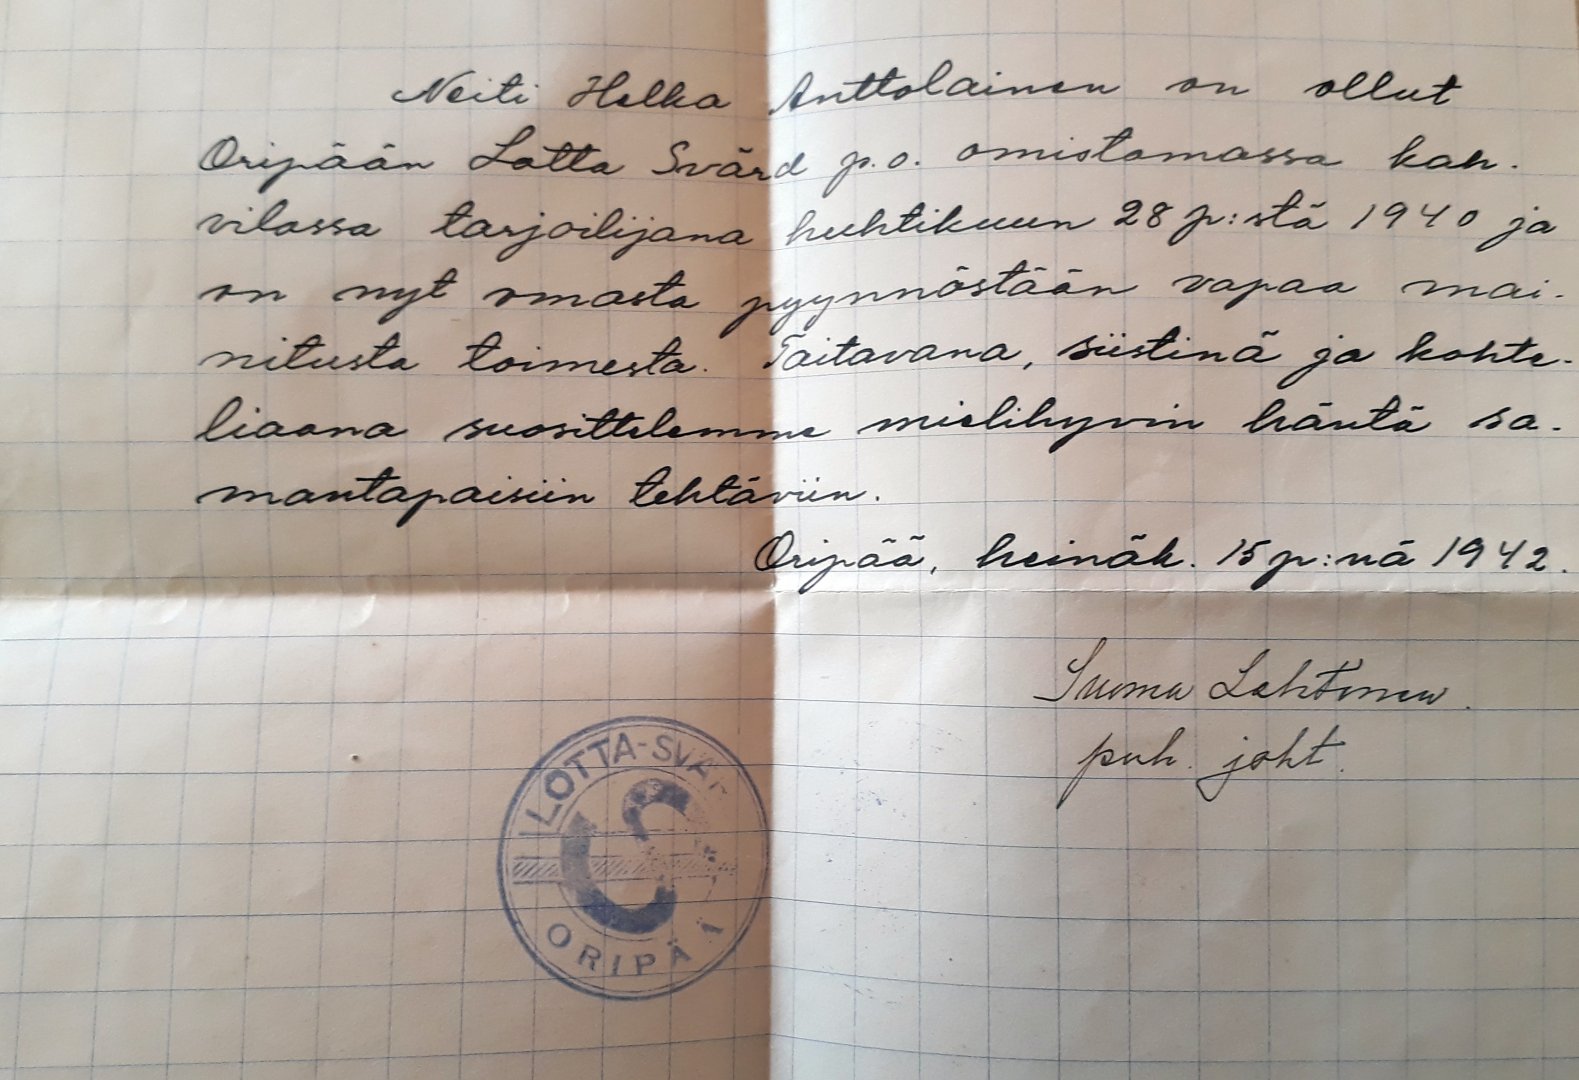 Neiti Helka Anttolainen on ollut
Oripään Lotta Svärd p.o. omistamassa kah-
vilassa tarjoilijana huhtikuun 28 p:stä 1940 ja
on nyt omasta pyynnöstään vapaa mai-
nitusta toimesta. Taitavana, siistinä ja kohte-
liaana suosittelemme mielihyvin häntä sa-
mantapaisiin tehtäviin.
Oripää, heinäk. 15 p:nä 1942.
Suoma Lehtonen.
puh. joht.
LOTTA-SVÄR
LS
ORIPÄÄ